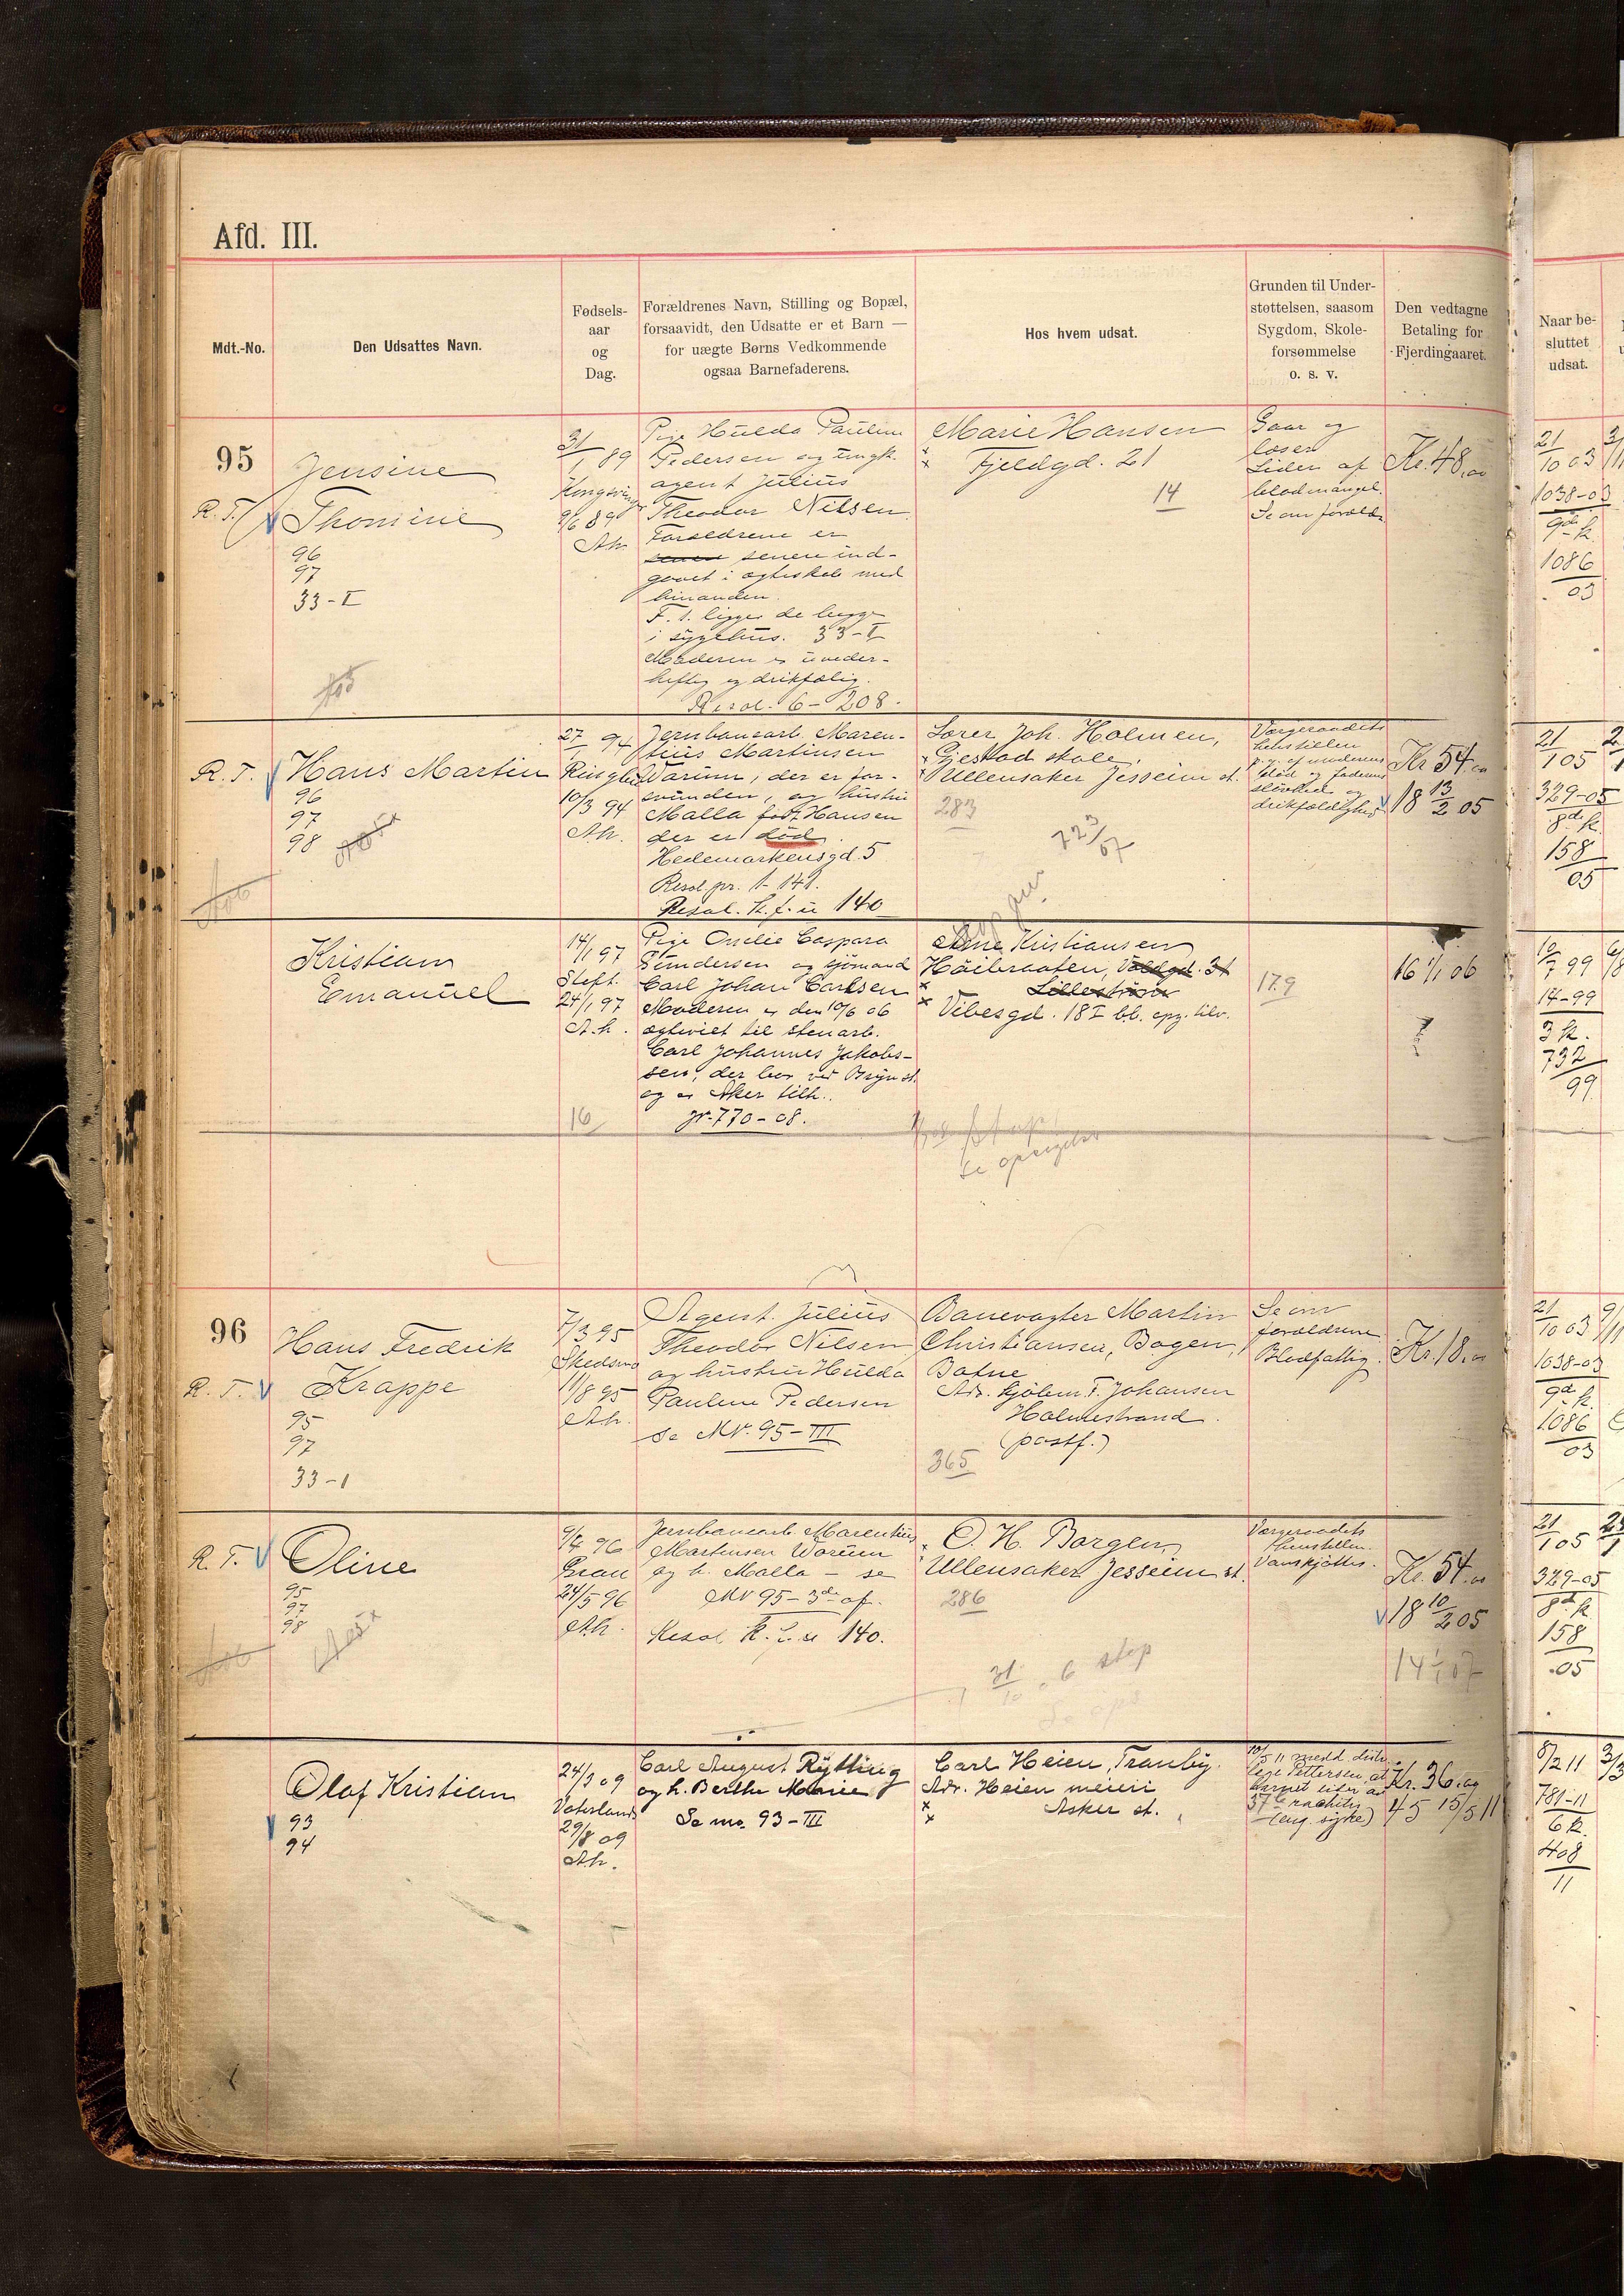 Afd. III.
Mdt.-No.
Den Udsattes Navn.
Fødsels-
aar
og
Dag.
Forældrenes Navn, Stilling og Bopæl,
forsaavidt, den Udsatte er et Barn —
for uægte Børns Vedkommende
ogsaa Barnefaderens.
Hos hvem udsat.
Grunden til Under-
støttelsen, saasom
Sygdom, Skole-
forsømmelse
o. s. v.
Den vedtagne
Betaling for
Fjerdingaaret.
Naar be-
sluttet
udsat.
95
R. T.
Jensine
Thomine
96
97
33-I
31/1 89
9/6 89
Ah.
Pige Hulda Pauline
Pedersen og ungk.
agent Julius
Theodor Nilsen.
Forældrene er
senere ind-
gaaet i ægteskab med
hinanden.
F. t. ligger de begge
i sygehus. 33-I
Moderen er uveder-
heftig og drikfældig.
Resol. 6-208.
Marie Hansen
Fjeldgd. 21
14
Gaar og
løser
Lider af
blodmangel.
Se om foræld.
Kr. 48,00
21/10 03
1038-03
9de k.
1086
03
R. T.
Hans Martin
96
97
98
27/1 94
10/3 94
Ah.
Jernbanearb. Maren-
tius Martinsen
Warum, der er for-
svunden, og hustru
Malla født Hansen
der er død.
Hedemarkensgd. 5
Resol. pr. 1-141.
Resol. K. f. u 140
Lærer Joh. Holmen,
Gjestad skole,
Ullensaker Jesseim st.
283
Værgeraadets
p. g. af moderens
død og faderens
sløvhed og
drikfældighed
Kr 54,00
18 13/2 05
21/1 05
329-05
8de k.
158
05
Kristian
Emanuel
14/1 97
24/1 97
A. h.
16
Pige Omelie Caspara
Gundersen og sjømand
Carl Johan Carlsen
Moderen er den 10/6 06
ægteviet til stenarb.
Carl Johannes Jakob-
sen, der bor ved Bryn st.
og er Aker tilh.
jr. 770-08.
Anne Kristiansen
Høibraaten,
Lillestrøm
Vibesgd. 18 I b.b. opg. tilv.
179
16 1/1 06
10/7 99
17-99
3 k.
732
99
96
R. T.
Hans Fredrik
Krappe
95
97
33-1
7/3 95
Skedsmo
11/8 95
Ah.
Agent Julius
Theodor Nilsen
og hustru Hulda
Pauline Pedersen
se Mr. 95-III
Banevogter Martin
Christiansen, Bogen,
Botne
Adr. kjøbm. F. Johansen
Holmestrand.
(postf.)
365
Se om
forældrene
Blodfattig.
Kr. 18,00
21/10 03
1038-03
9de k.
1086
03
R. T.
Oline
95
97
98
9/4 96
Grau
24/5 96
Ah.
Jernbanearb. Marentius
Martinsen Warum
og h. Malla - se
Mr 95-3de af.
Resol K. f. u 140.
O. H. Borgen,
Ullensaker Jesseim st.
286
31/10 06 stop
Værgeraadets
Vanskjøttes.
Kr. 54,00
18 10/2 05
14 1/1 07
21/1 05
329-05
8de k
158
05
Olaf Kristian
93
94
24/3 09
Vaterland
29/8 09
Ah.
Carl August Rytting
og h. Berthe Marie
Se no. 93-III
Carl Heien, Tranby.
Adr. Heien meieri
Asker st.
10/5 11 medd. distr.
læge Pettersen, at
barnet lider af
rachitis
(eng. syke)
Kr. 36,00
45 15/5 11
8/2 11
781-11
6 k.
408
11